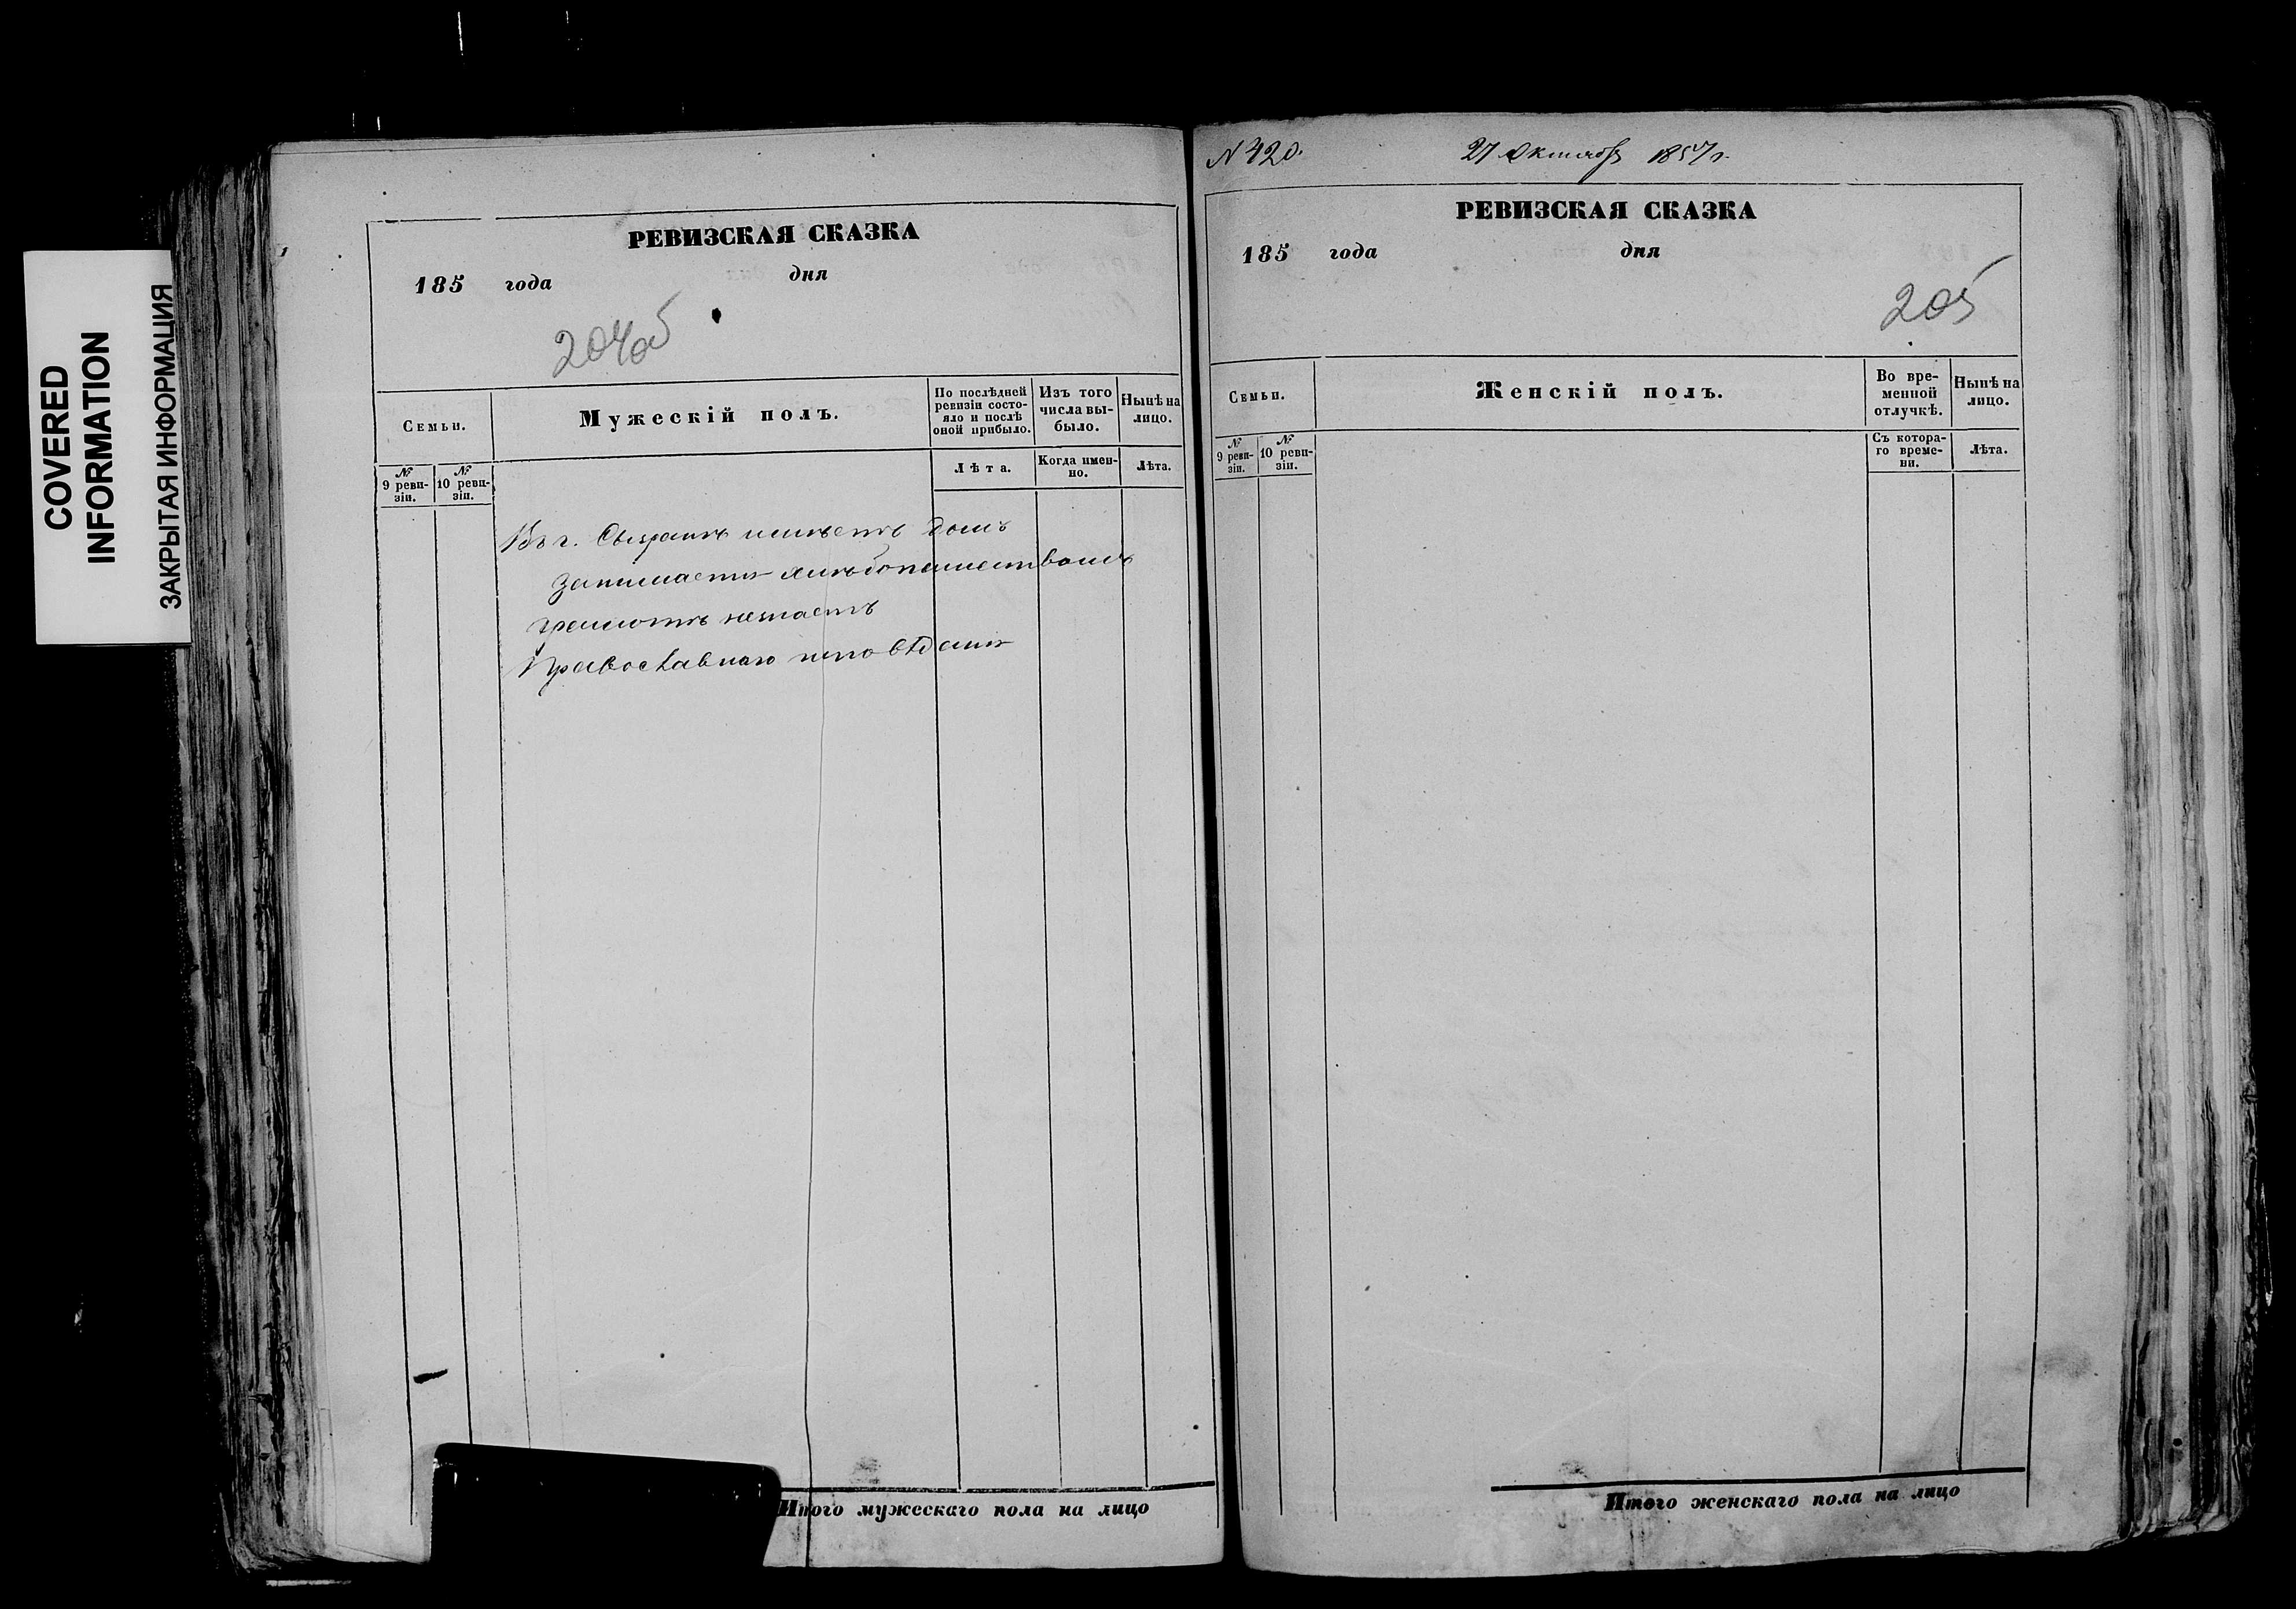 COVERED
INFORMATION
ЗАКРЫТАЯ ИНФОРМАЦИЯ
РЕВИЗСКАЯ СКАЗКА
185 года дня
204об
Семьи.
Мужескій полъ.
По послѣдней ревизіи состояло и послѣ оной прибыло.
Изъ того числа выбыло.
Нынѣ на лицо.
№ 9 ревизіи.
№ 10 ревизіи.
Лѣта.
Когда именно.
Лѣта.
Въ г. Сызранѣ имѣетъ домъ
Занимается хлѣбопашествомъ
грамотѣ незнаетъ
Православнаго исповѣданія
Итого мужескаго пола на лицо
N 420.
27 Октября 1857 г.
РЕВИЗСКАЯ СКАЗКА
185 года дня
205
Семьи.
Женскій полъ.
Во временной отлучкѣ.
Нынѣ на лицо.
№ 9 ревизіи.
№ 10 ревизіи.
Съ котораго времени.
Лѣта.
Итого женскаго пола на лицо